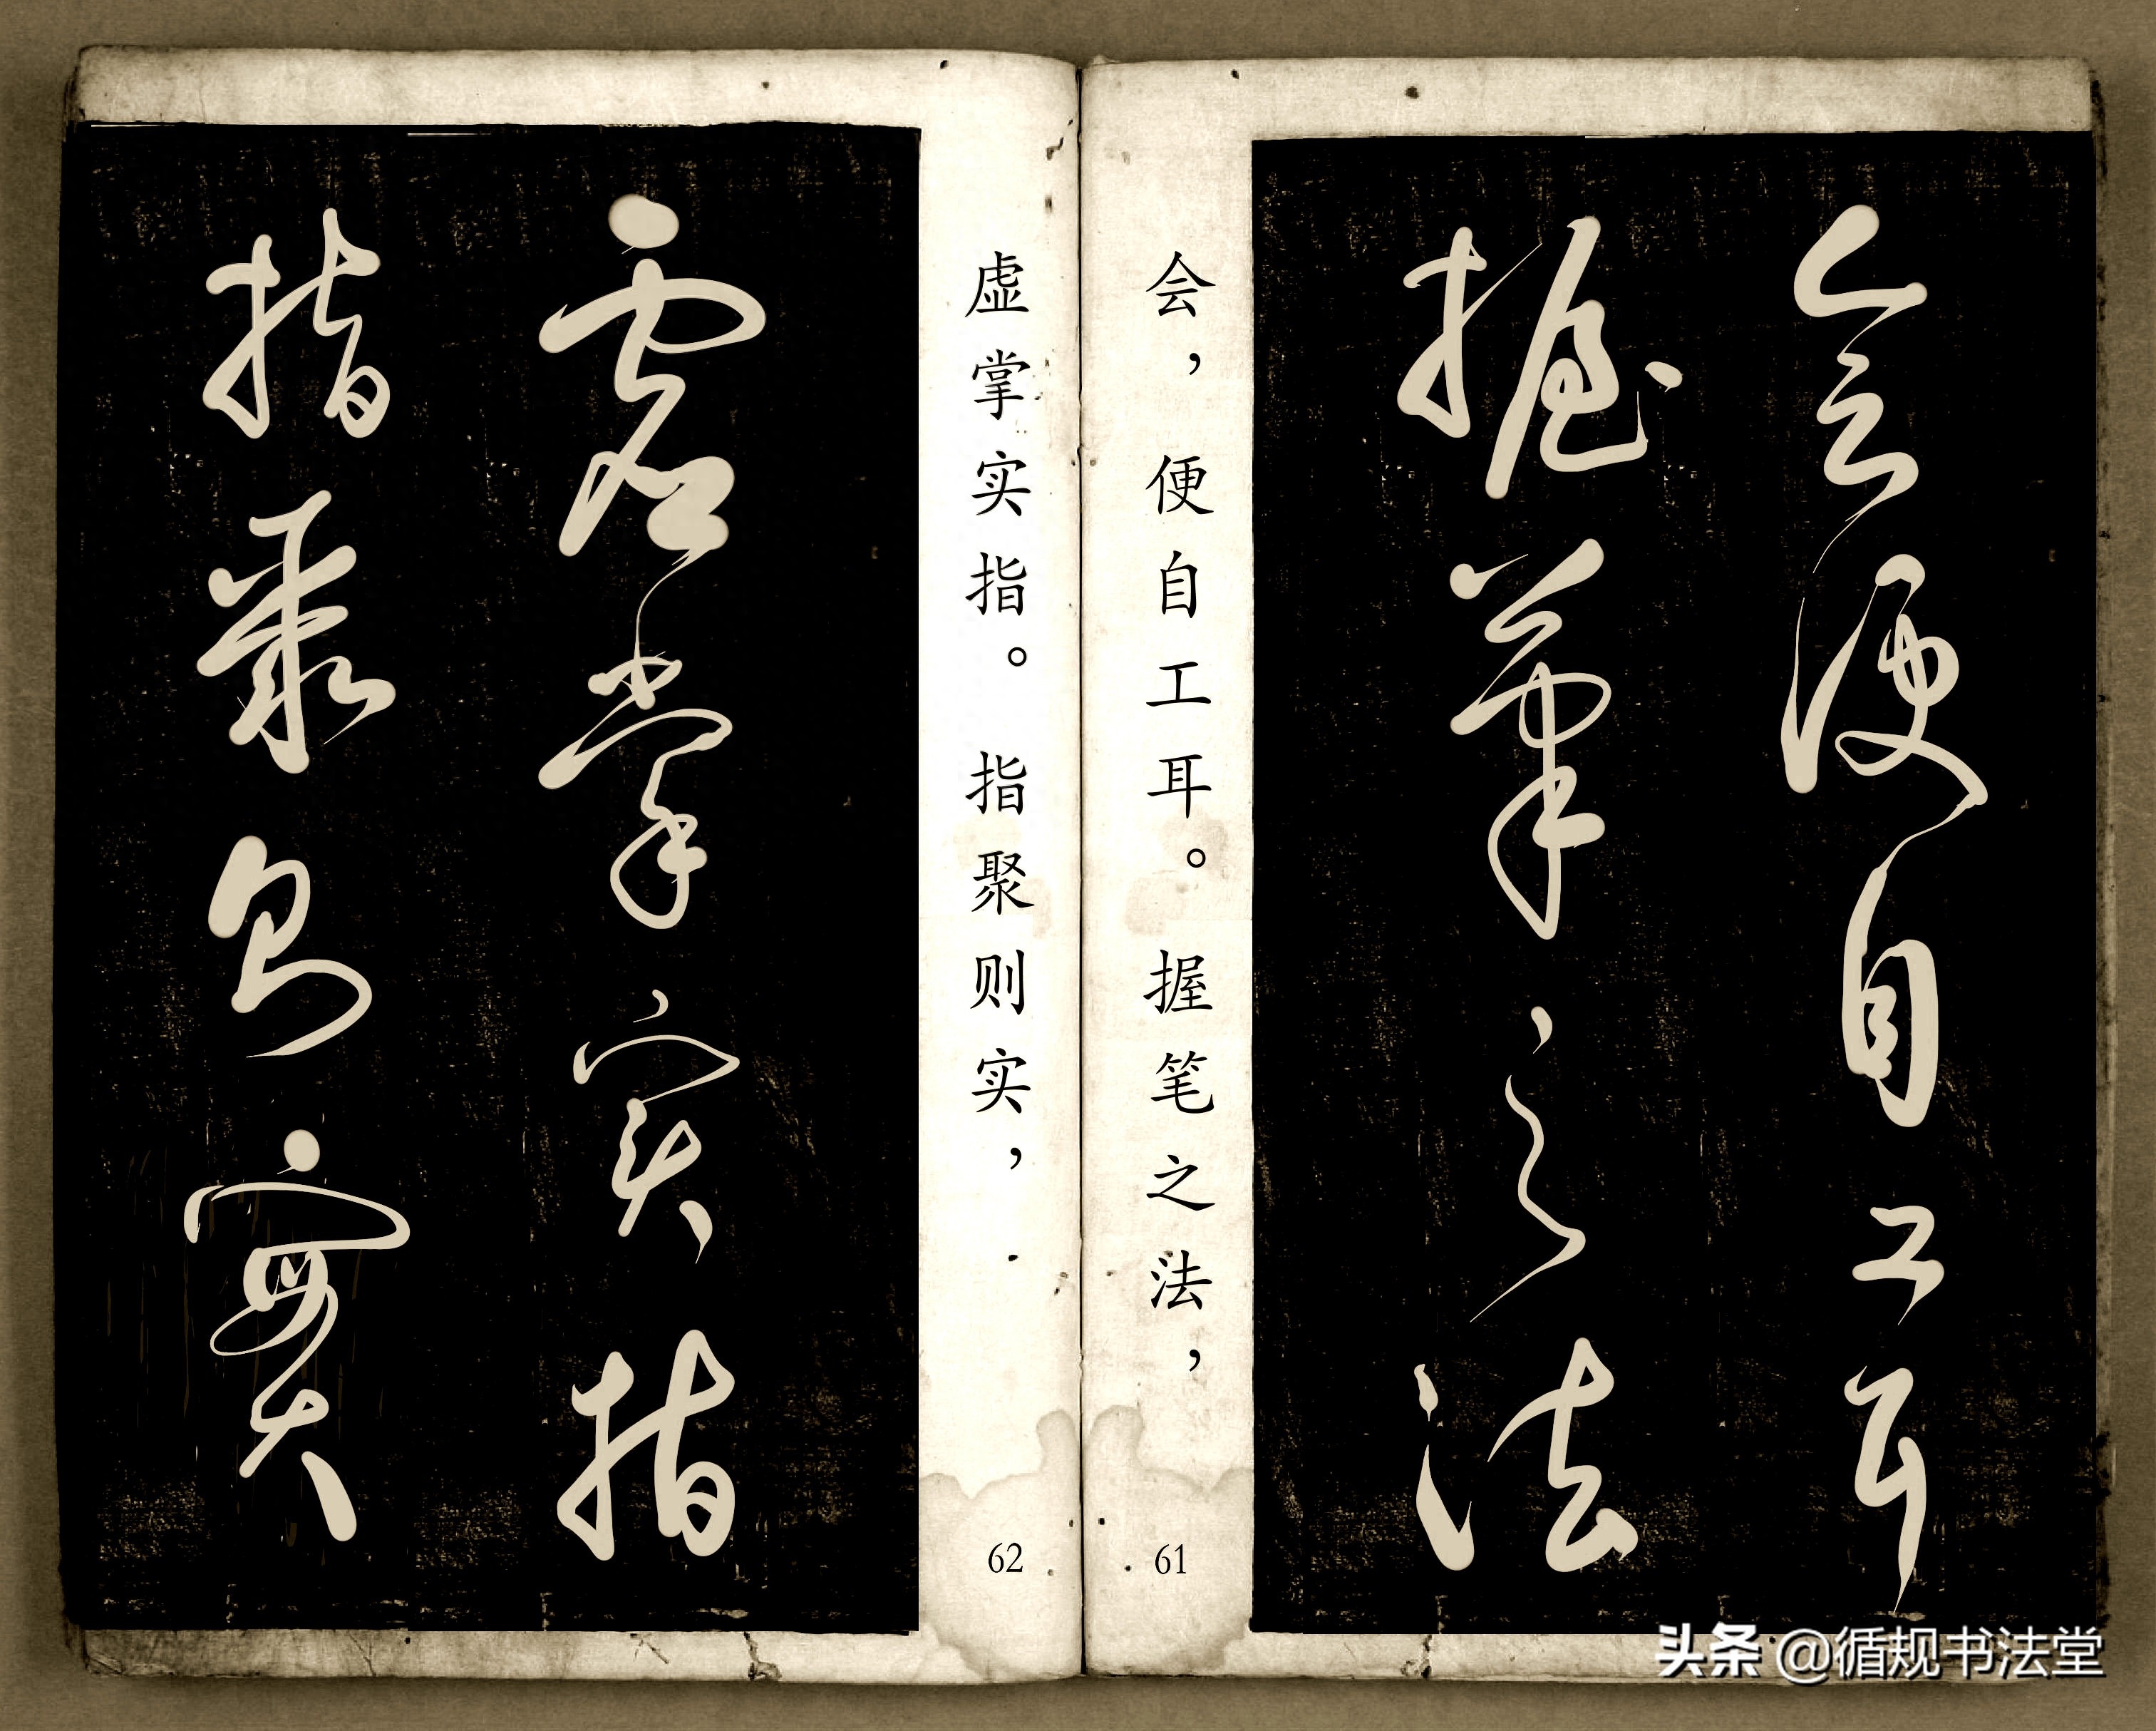 会便自工耳
握笔之法
会，便自工耳。握笔之法，
61
虚掌实指。指聚则实，
62
虚掌实指
指聚则實
头条 @循规书法堂